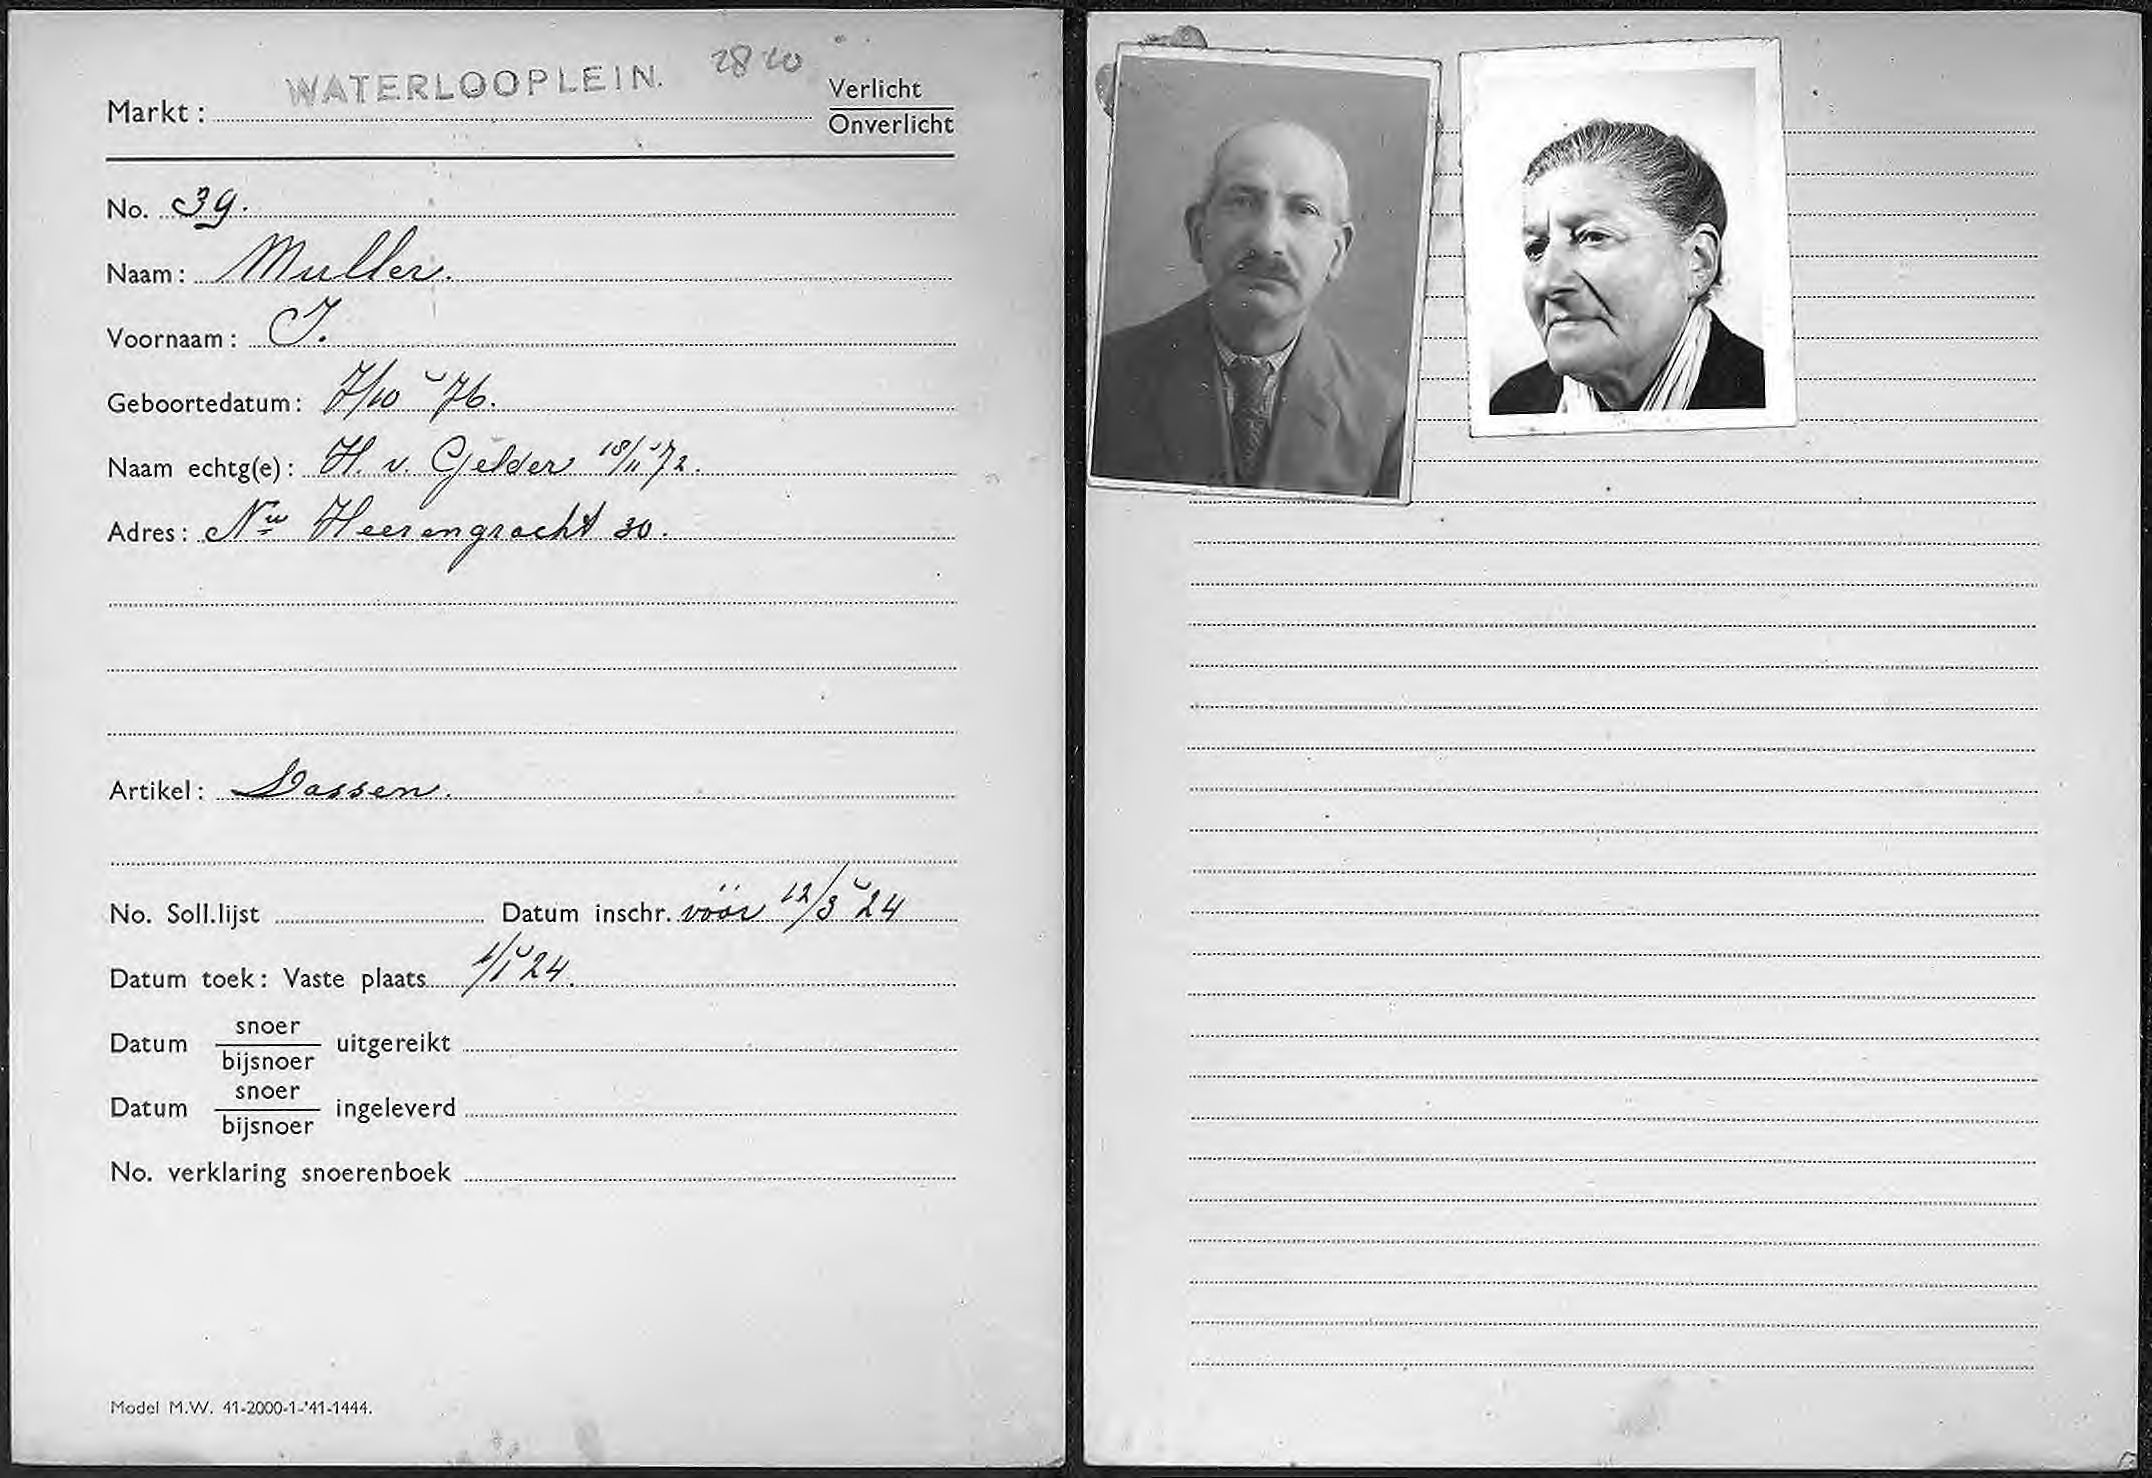 WATERLOOPLEIN. 2820
Markt :
Verlicht
Onverlicht
No. 39.
Naam : Muller.
Voornaam : I.
Geboortedatum : 7/10 '76.
Naam echtg(e) : H. v. Gelder 18/11 '72.
Adres : Nw Heerengracht 30.
Artikel : Dassen.
No. Soll.lijst Datum inschr. vóór 12/3 '24
Datum toek : Vaste plaats 1/1 '24.
Datum snoer uitgereikt
bijsnoer
Datum snoer ingeleverd
bijsnoer
No. verklaring snoerenboek
Model M.W. 41-2000-1-'41-1444.